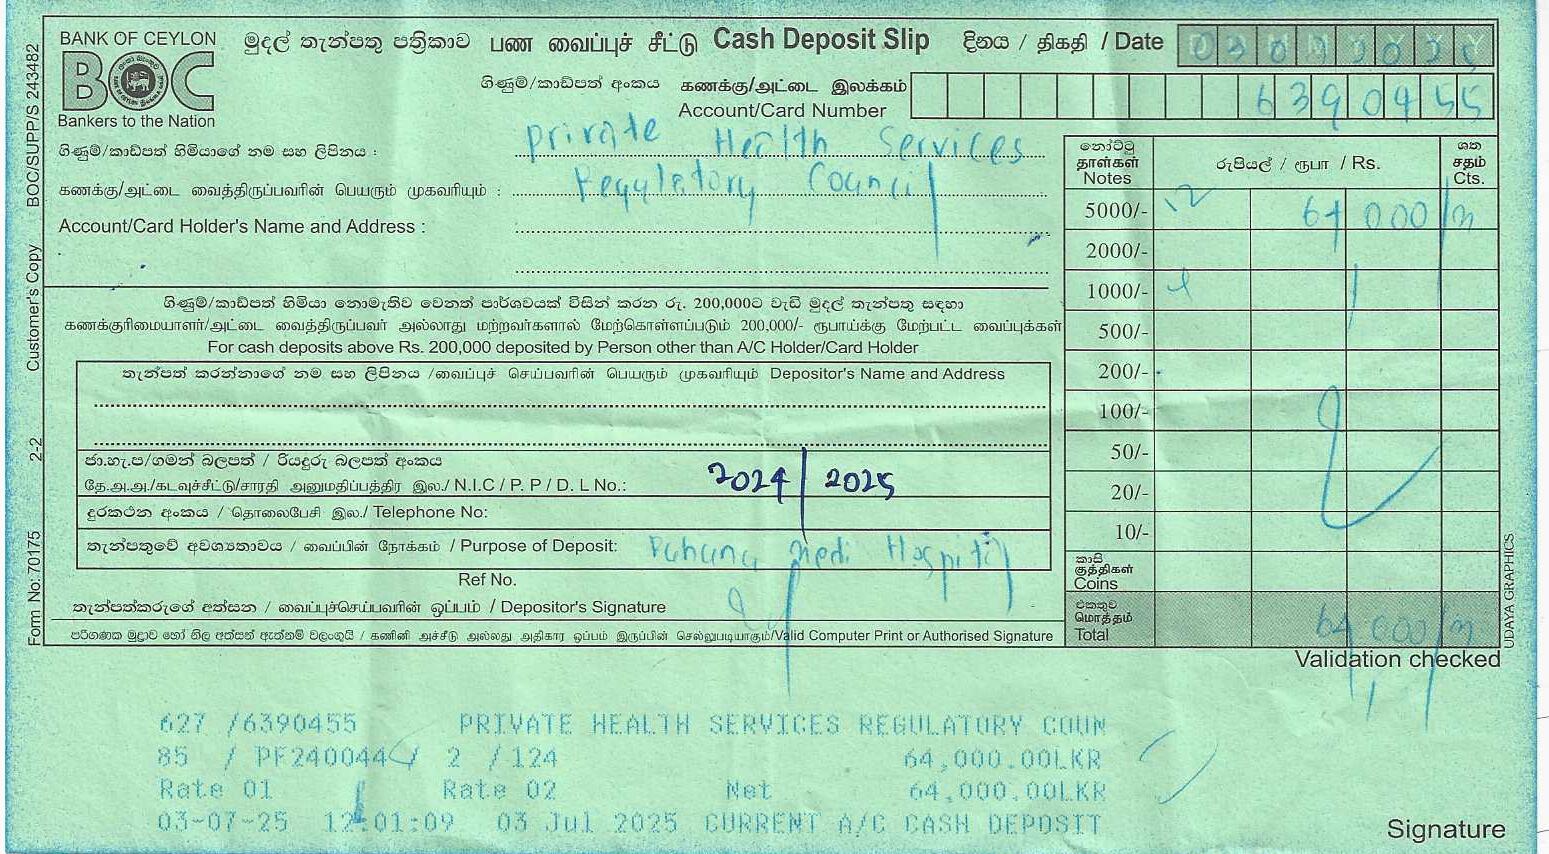 BANK OF CEYLON
BOC
Bankers to the Nation
මුදල් තැන්පතු පත්‍රිකාව பண வைப்புச் சீட்டு Cash Deposit Slip
දිනය / திகதி / Date 03072025
ගිණුම්/කාඩ්පත් අංකය கணக்கு/அட்டை இலக்கம்
Account/Card Number 6390455
ගිණුම්/කාඩ්පත් හිමියාගේ නම සහ ලිපිනය : Private Health Services
கணக்கு/அட்டை வைத்திருப்பவரின் பெயரும் முகவரியும் : Regulatory Council
Account/Card Holder's Name and Address :
ගිණුම්/කාඩ්පත් හිමියා නොමැතිව වෙනත් පාර්ශවයක් විසින් කරන රු. 200,000ට වැඩි මුදල් තැන්පතු සඳහා
கணக்குரிமையாளர்/அட்டை வைத்திருப்பவர் அல்லாது மற்றவர்களால் மேற்கொள்ளப்படும் 200,000/- ரூபாய்க்கு மேற்பட்ட வைப்புக்கள்
For cash deposits above Rs. 200,000 deposited by Person other than A/C Holder/Card Holder
තැන්පත් කරන්නාගේ නම සහ ලිපිනය /வைப்புச் செய்பவரின் பெயரும் முகவரியும் Depositor's Name and Address
ජා.හැ.ප/ගමන් බලපත් / රියදුරු බලපත් අංකය
தே.அ.அ./கடவுச்சீட்டு/சாரதி அனுமதிப்பத்திர இல./ N.I.C / P. P / D. L No.: 2024/2025
දුරකථන අංකය / தொலைபேசி இல./ Telephone No:
තැන්පතුවේ අවශ්‍යතාවය / வைப்பின் நோக்கம் / Purpose of Deposit: Medi Hospital
Ref No.
තැන්පත්කරුගේ අත්සන / வைப்புச்செய்பவரின் ஒப்பம் / Depositor's Signature
පරිගණක මුද්‍රාව හෝ නිල අත්සන ඇත්නම් වලංගුයි / கணினி அச்சீடு அல்லது அதிகார ஒப்பம் இருப்பின் செல்லுபடியாகும்/Valid Computer Print or Authorised Signature
නෝට්ටු தாள்கள் Notes
රුපියල් / ரூபா / Rs.
ශත சதம் Cts.
5000/- 12 64 000
2000/-
1000/- 4
500/-
200/-
100/-
50/-
20/-
10/-
කාසි குத்திகள் Coins
එකතුව மொத்தம் Total 64 000
Validation checked
627 /6390455 PRIVATE HEALTH SERVICES REGULATORY COUN
85 / PF240044 / 2 / 124 64,000.00LKR
Rate 01 Rate 02 Net 64,000.00LKR
03-07-25 12:01:09 03 Jul 2025 CURRENT A/C CASH DEPOSIT
Signature
Form No: 70175 2-2 Customer's Copy BOC/SUPP/S 243482
UDAYA GRAPHICS